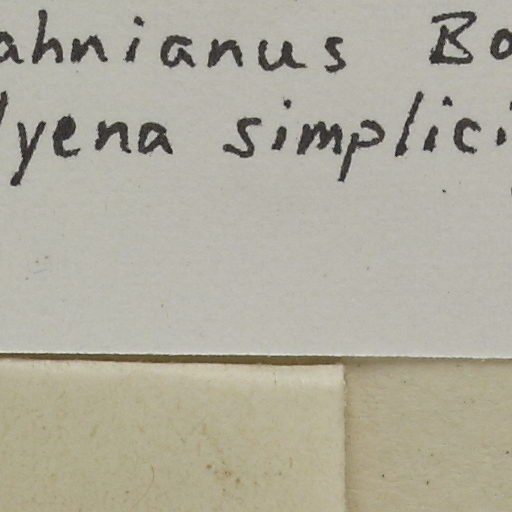 ahnianus Bo
lyena simplici